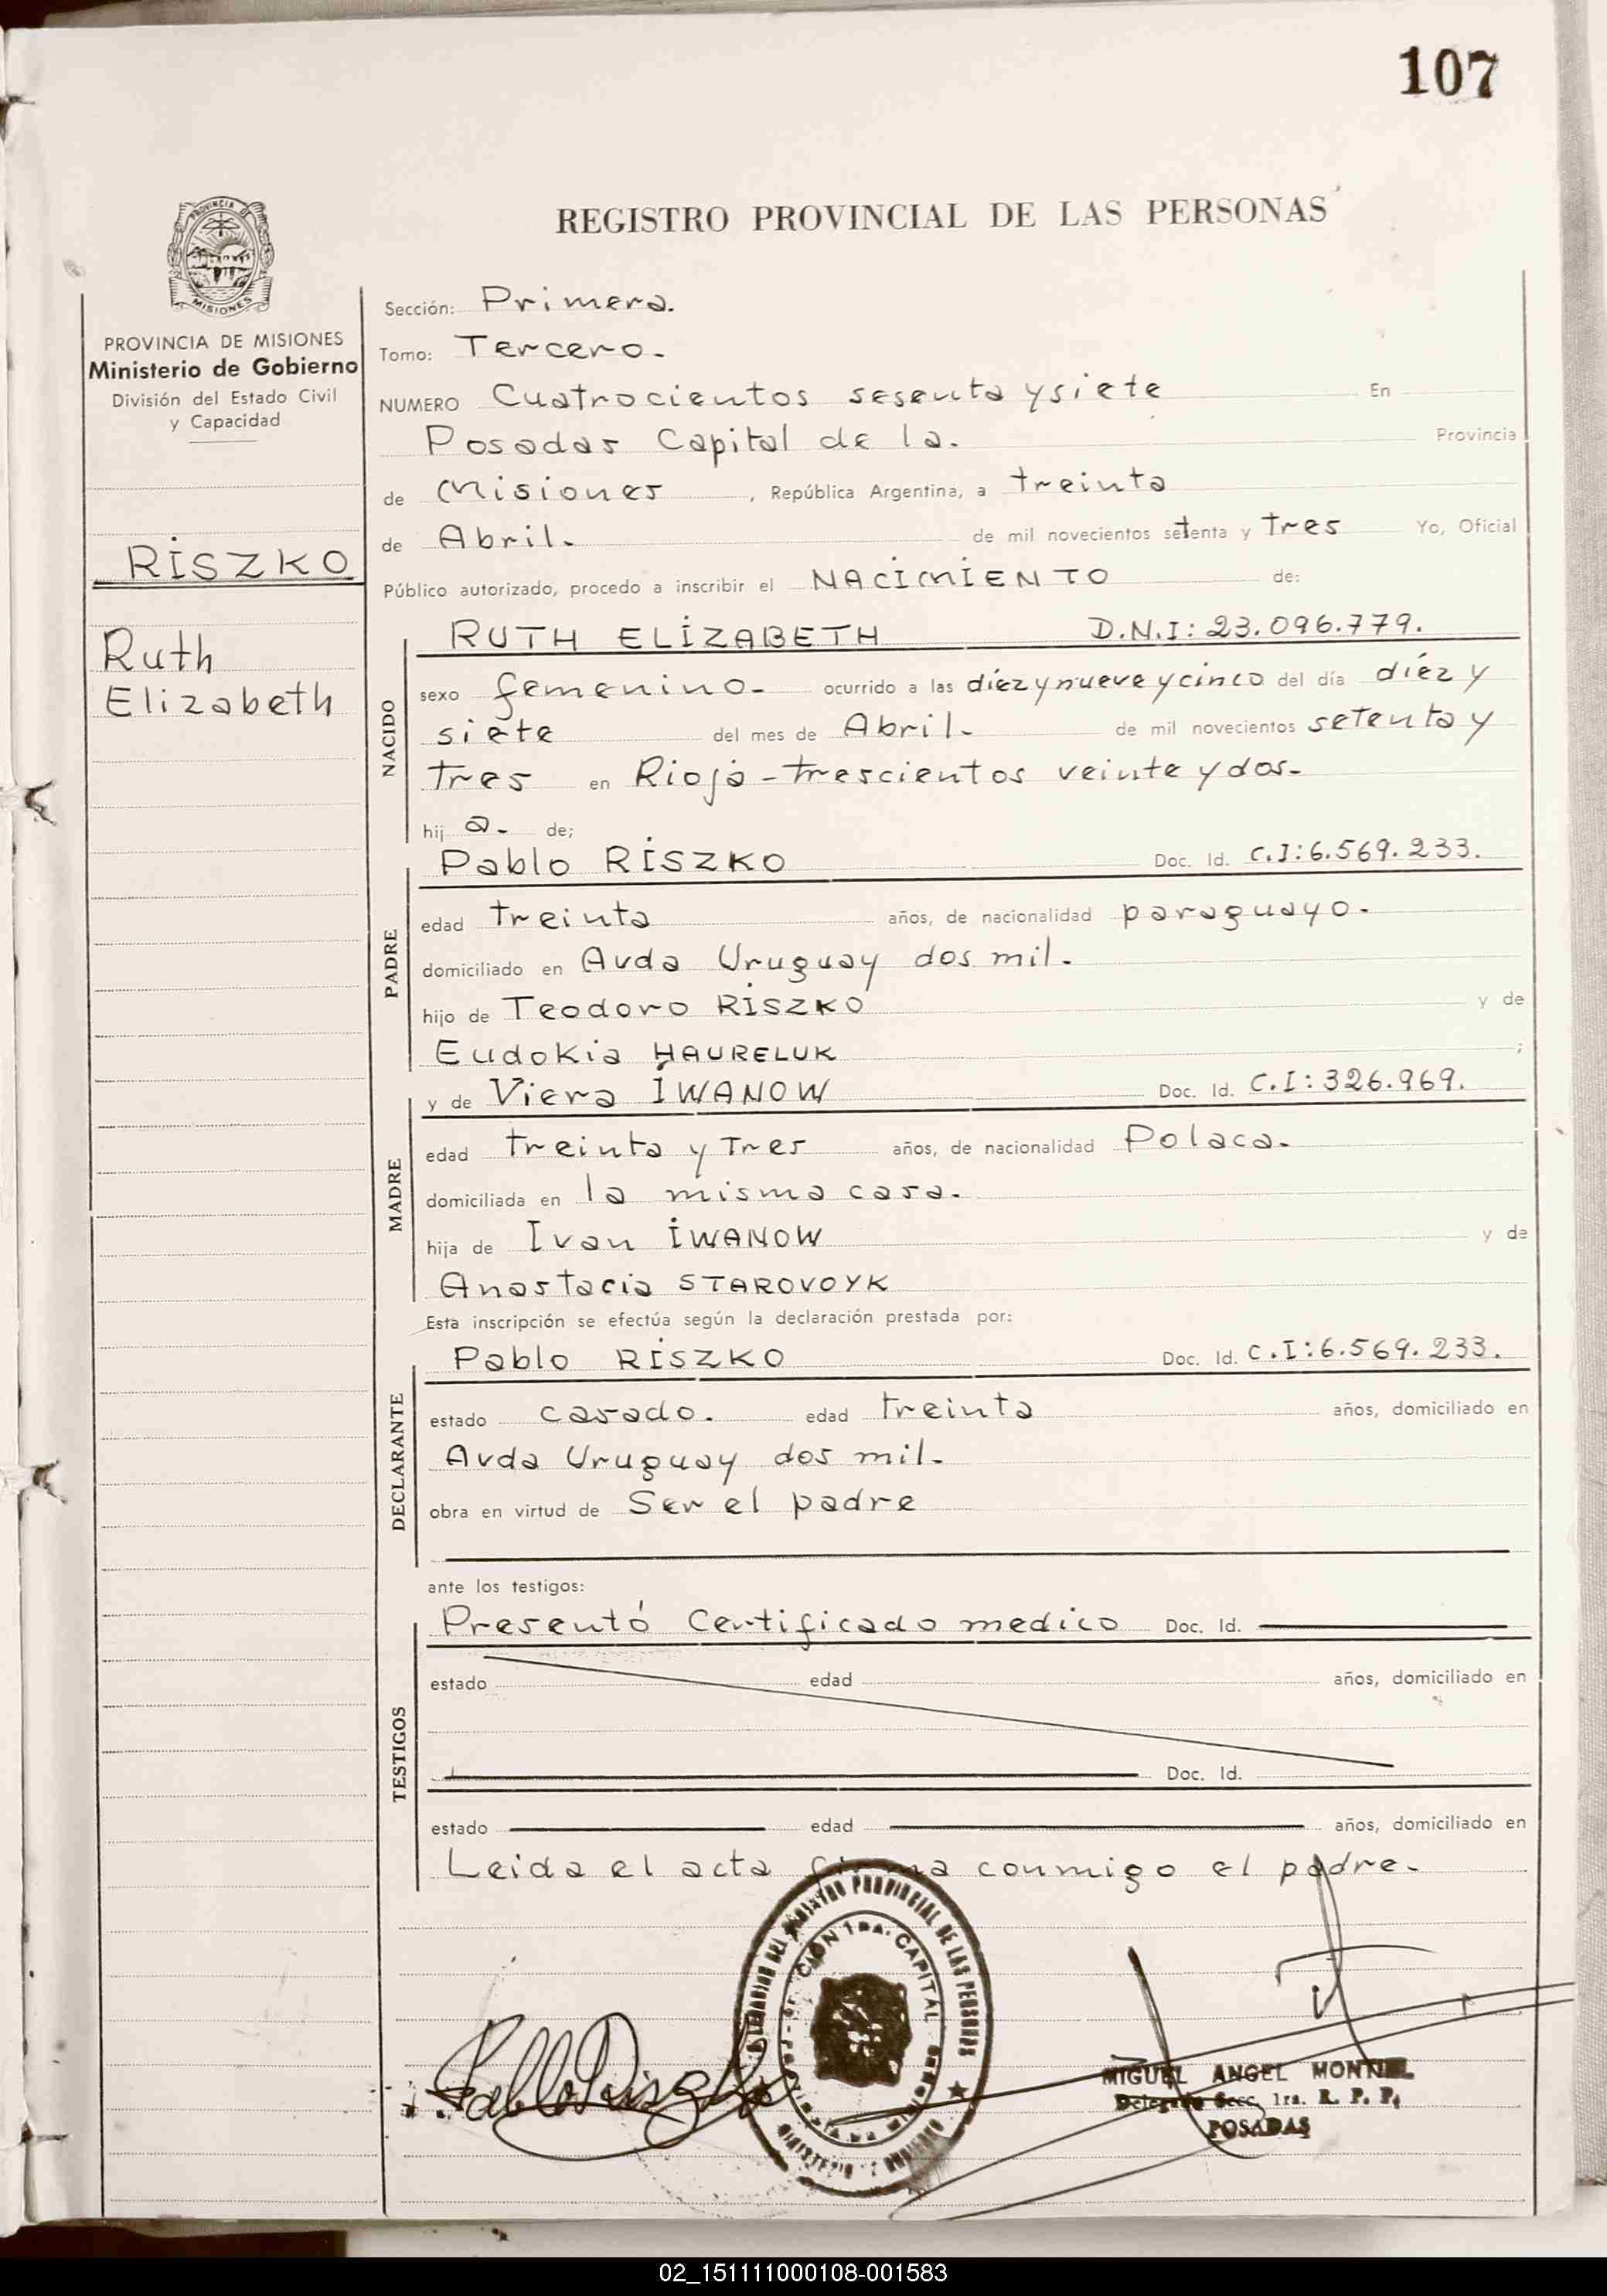 107
REGISTRO PROVINCIAL DE LAS PERSONAS
PROVINCIA DE MISIONES
Ministerio de Gobierno
División del Estado Civil
y Capacidad
RISZKO
Ruth
Elizabeth
Sección: Primera.
Tomo: Tercero.
NUMERO Cuatrocientos sesenta y siete En
Posadas Capital de la. Provincia
de Misiones, República Argentina, a treinta
de Abril. de mil novecientos setenta y tres Yo, Oficial
Público autorizado, procedo a inscribir el NACIMIENTO de:
NACIDO
RUTH ELIZABETH D.N.I: 23.096.779.
sexo femenino. ocurrido a las diez y nueve y cinco del día diéz y
siete del mes de Abril. de mil novecientos setenta y
tres en Rioja - trescientos veinte y dos.
hij a. de;
PADRE
Pablo RISZKO Doc. Id. C.I: 6.569.233.
edad treinta años, de nacionalidad paraguayo.
domiciliado en Avda Uruguay dos mil.
hijo de Teodoro RISZKO y de
Eudokia HAURELUK ;
MADRE
y de Viera IWANOW Doc. Id. C.I: 326.969.
edad treinta y tres años, de nacionalidad Polaca.
domiciliada en la misma casa.
hija de Ivan IWANOW y de
Anastacia STAROVOYK
Esta inscripción se efectúa según la declaración prestada por:
DECLARANTE
Pablo RISZKO Doc. Id. C.I: 6.569.233.
estado casado. edad treinta años, domiciliado en
Avda Uruguay dos mil.
obra en virtud de Ser el padre
ante los testigos:
TESTIGOS
Presentó Certificado medico Doc. Id.
estado edad años, domiciliado en
Doc. Id.
estado edad años, domiciliado en
Leida el acta firma conmigo el padre.
Pablo Riszko
REGISTRO PROVINCIAL DE LAS PERSONAS
1RA. CAPITAL
MIGUEL ANGEL MONTIEL
Delegado Secc. 1ra. R. P. P.
POSADAS
02_151111000108-001583